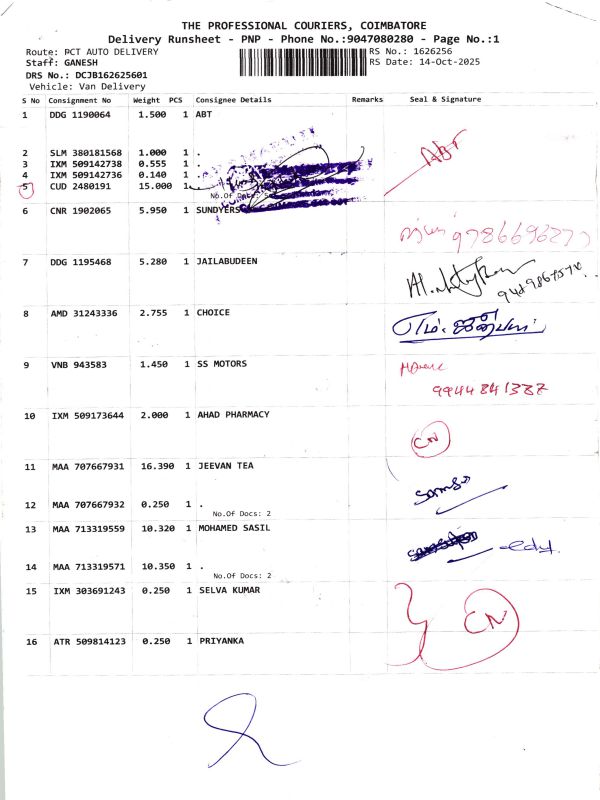 THE PROFESSIONAL COURIERS, COIMBATORE
Delivery Runsheet - PNP - Phone No.:9047080280 - Page No.:1
Route: PCT AUTO DELIVERY RS No.: 1626256
Staff: GANESH RS Date: 14-Oct-2025
DRS No.: DCJB162625601
Vehicle: Van Delivery
S No Consignment No Weight PCS Consignee Details Remarks Seal & Signature
1 DDG 1190064 1.500 1 ABT
ABT
2 SLM 380181568 1.000 1 .
3 IXM 509142738 0.555 1 .
4 IXM 509142736 0.140 1 .
5 CUD 2480191 15.000 1 .
No.Of Docs:
6 CNR 1902065 5.950 1 SUNDYERS
7 DDG 1195468 5.280 1 JAILABUDEEN
8 AMD 31243336 2.755 1 CHOICE
9 VNB 943583 1.450 1 SS MOTORS
10 IXM 509173644 2.000 1 AHAD PHARMACY
CN
11 MAA 707667931 16.390 1 JEEVAN TEA
12 MAA 707667932 0.250 1 .
No.Of Docs: 2
13 MAA 713319559 10.320 1 MOHAMED SASIL
14 MAA 713319571 10.350 1 .
No.Of Docs: 2
15 IXM 303691243 0.250 1 SELVA KUMAR
CN
16 ATR 509814123 0.250 1 PRIYANKA